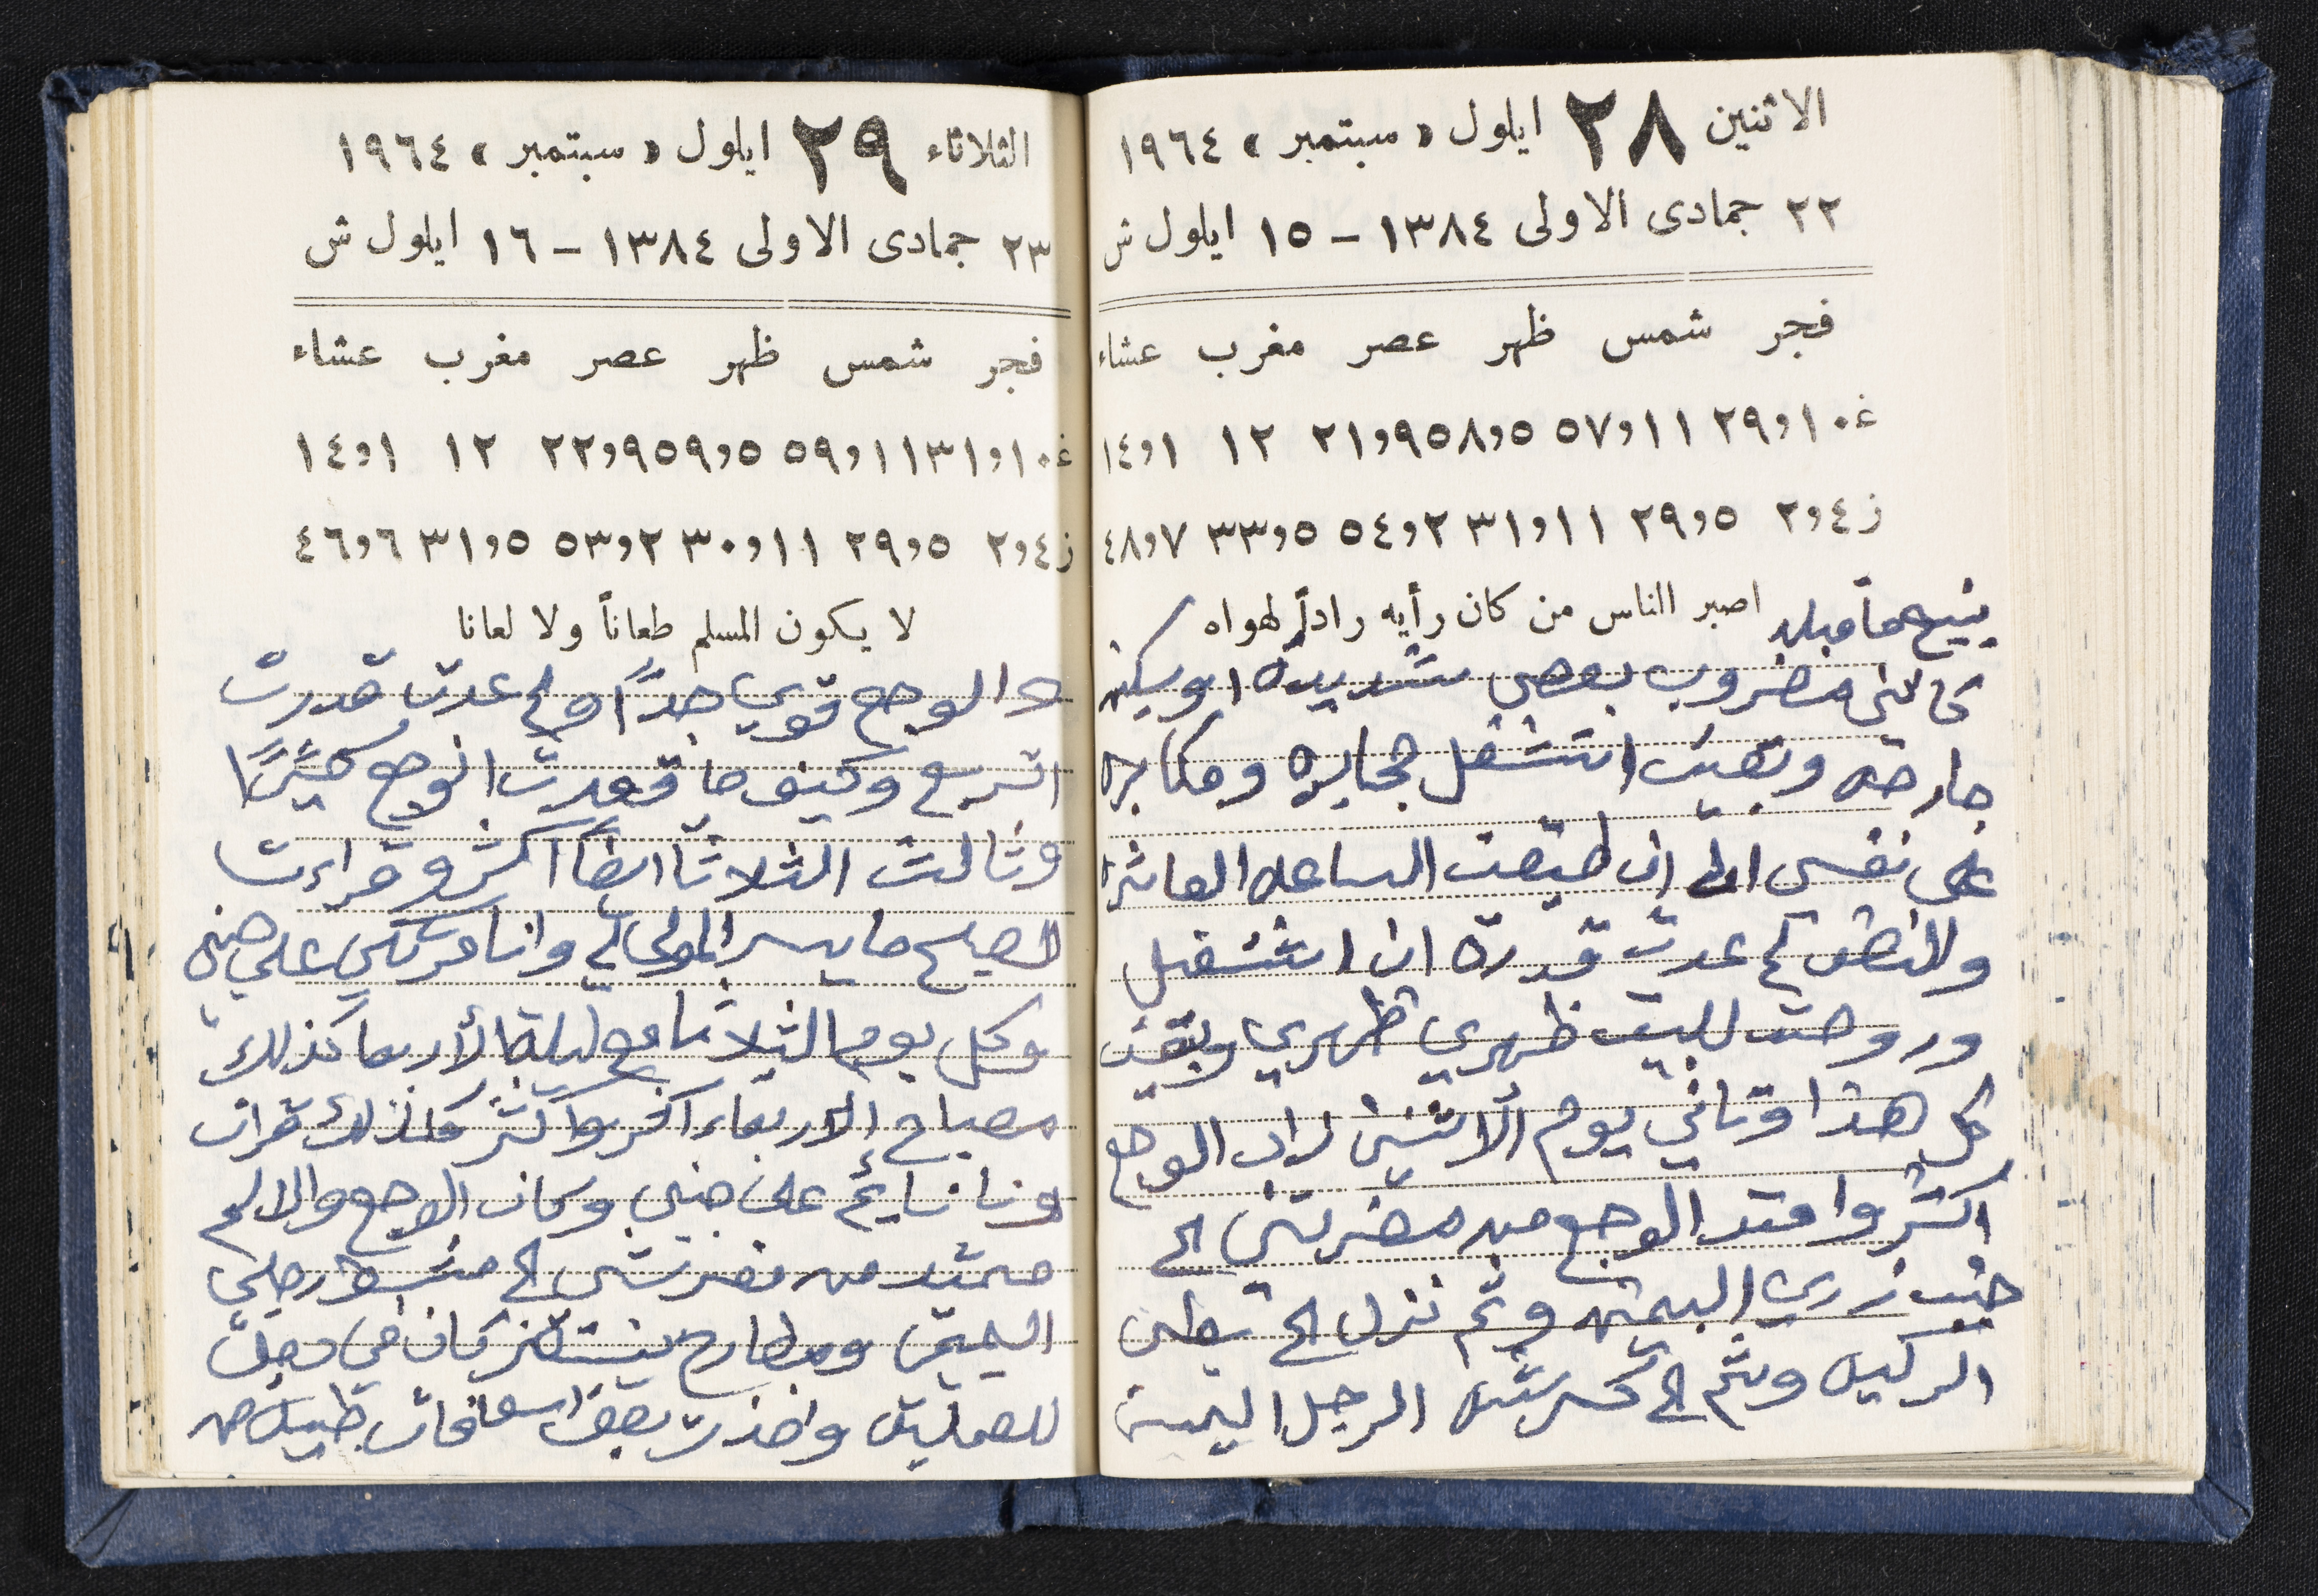 الاثنين ٢٨ ايلول « سبتمبر » ١٩٦٤
٢٢ جمادى الاولى ١٣٨٤ – ١٥ ايلول ش
فجر شمس ظهر عصر مغرب عشاء
غ ١٠و٢٩ ١١و٥٧ ٥و٥٨ ٩و٢١ ١٢ ١و١٤
ز ٤و٢ ٥و٢٩ ١١و٣١ ٢و٥٤ ٥و٣٣ ٧و٤٨
اصبر الناس من كان رأيه راداً لهواه
يتبع ما قبله
كانني مضروب بعصى شديدة او سكينه
جارحه وبقيت اشتغل مجابره ومكابره
على نفسي الى ان طبقت الساعه العاشرة
والنصف لم عدت قدرة ان اشتغل
وروحت للبيت ظهري ظهري وبقيت
كل هذا وثاني يوم الاثنين زاد الوجع
اكثر وامتد الوجع من مضربتي الى
جنب زري اليمين وثم نزل الى بطن
الركبه وثم الى كرشة الرجل اليمين
الثلاثاء ٢٩ ايلول « سبتمبر » ١٩٦٤
٢٣ جمادى الاولى ١٣٨٤ – ١٦ ايلول ش
فجر شمس ظهر عصر مغرب عشاء
غ ١٠و٣١ ١١و٥٩ ٥و٥٩ ٩و٢٢ ١٢ ١و١٤
ز ٤و٢ ٥و٢٩ ١١و٣٠ ٢و٥٣ ٥و٣١ ٦و٤٦
لا يكون المسلم طعاناً ولا لعانا
والوجع قوي جداً ولم عدت قدرت
اتربع وكيف ما قعدت انوجع كثيرًا
وثالث الثلاثا ايضاً اكثر وقراءت
الصبح ما يسر المولى لي وانا مرتكي على جنبي
وكل يوم الثلاثا مع ليلة الأربعا كذلك
صباح الاربعاء اكثر واكثر كذلك قرات
وانا نايم على جنبي وكان الوجع والالم
ممتد من مضربتي الى مشط رجلي
اليمين ومطارح كان في محل
للعمليه واخذت بعض اسعافات طبيه من